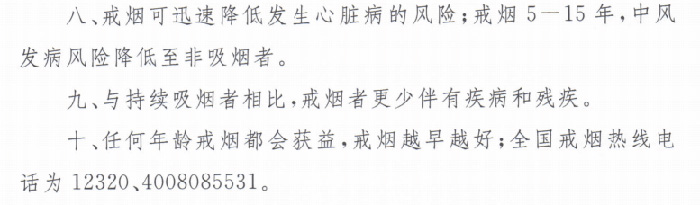 八、戒烟可迅速降低发生心脏病的风险;戒烟 5—15 年,中风
发病风险降低至非吸烟者。
九、与持续吸烟者相比,戒烟者更少伴有疾病和残疾。
十、任何年龄戒烟都会获益,戒烟越早越好;全国戒烟热线电
话为 12320、4008085531。